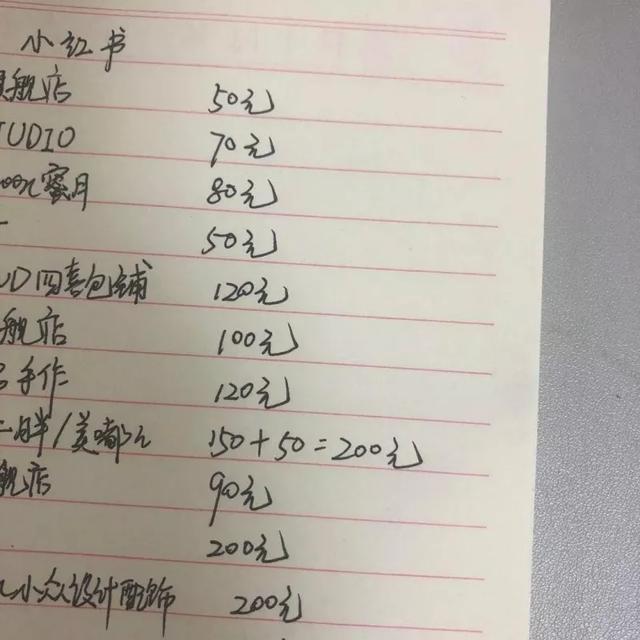 小红书
旗舰店 50元
TUDIO 70元
蜜月 80元
50元
UD四喜包铺 120元
舰店 100元
手作 120元
胖/美嘟 150+50=200元
舰店 90元
200元
小众设计配饰 200元